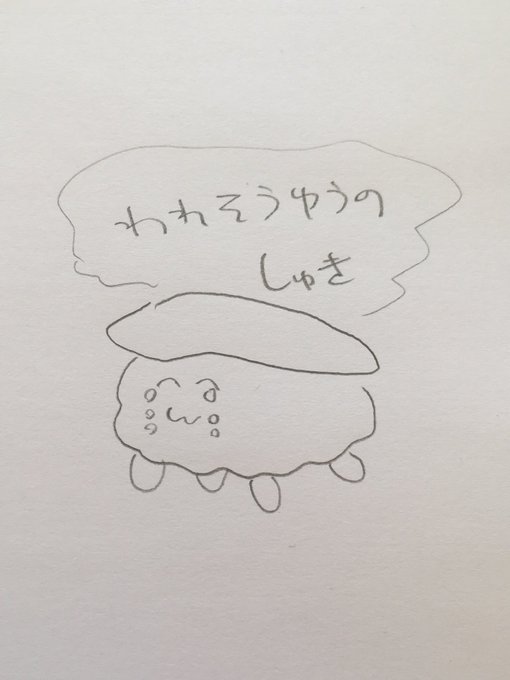 われそうゆうの
しゅき